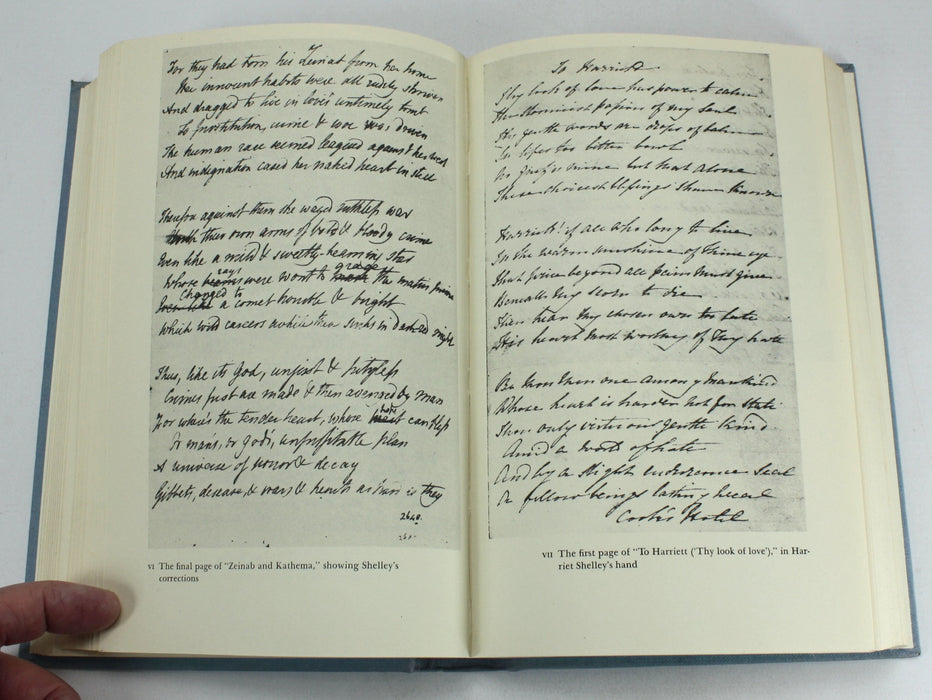 For they had torn his Zeinab from her home
Her innocent habits were all rudely shriven
And dragged to live in love's untimely tomb
To prostitution, crime & woe was driven
The human race seemed leagued against her weal
And indignation cased her naked heart in steel
Therefore against them she waged ruthless war
With their own arms of bold & bloody crime
Even like a mild & sweetly-beaming star
Whose beams rays were wont to grace the matin prime
Even like changed to a comet horrible & bright
Which wild careers awhile then sinks in dark-red night
Thus, like its God, unjust & pityless
Crimes first are made & then avenged by man
For where's the tender heart, whose hope can bless
Or man's, or god's, unprofitable plan
A universe of horror & decay
Gibbets, disease, & wars & hearts as hard as they
2640
VI The final page of "Zeinab and Kathema," showing Shelley's
corrections
To Harriett
Thy look of love has power to calm
The stormiest passion of my Soul
Thy gentle words are drops of balm
In lifes too bitter bowl
No grief is mine but that alone
These choicest blessings I have known
Harriett! if all who long to live
In the warm sunshine of thine eye
That price beyond all pain must give
Beneath thy scorn to die
Then hear thy chosen own too late
His heart most worthy of thy hate
Be thou then one among Mankind
Whose heart is harder not for state
Thou only virtuous gentle kind
Amid a world of hate
And by a slight endurance seal
A fellow beings lasting weal
Cook's Hotel
VII The first page of "To Harriett ('Thy look of love')," in Har-
riet Shelley's hand